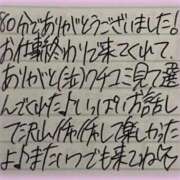 80分でありがとうございました!
お仕事終わりで来てくれて、
ありがと(注)クチコミ見て選
んでくれた♪いっぱいお話し
て沢山イチャイチャして楽しかった
よ♪またいつでも来てね♡